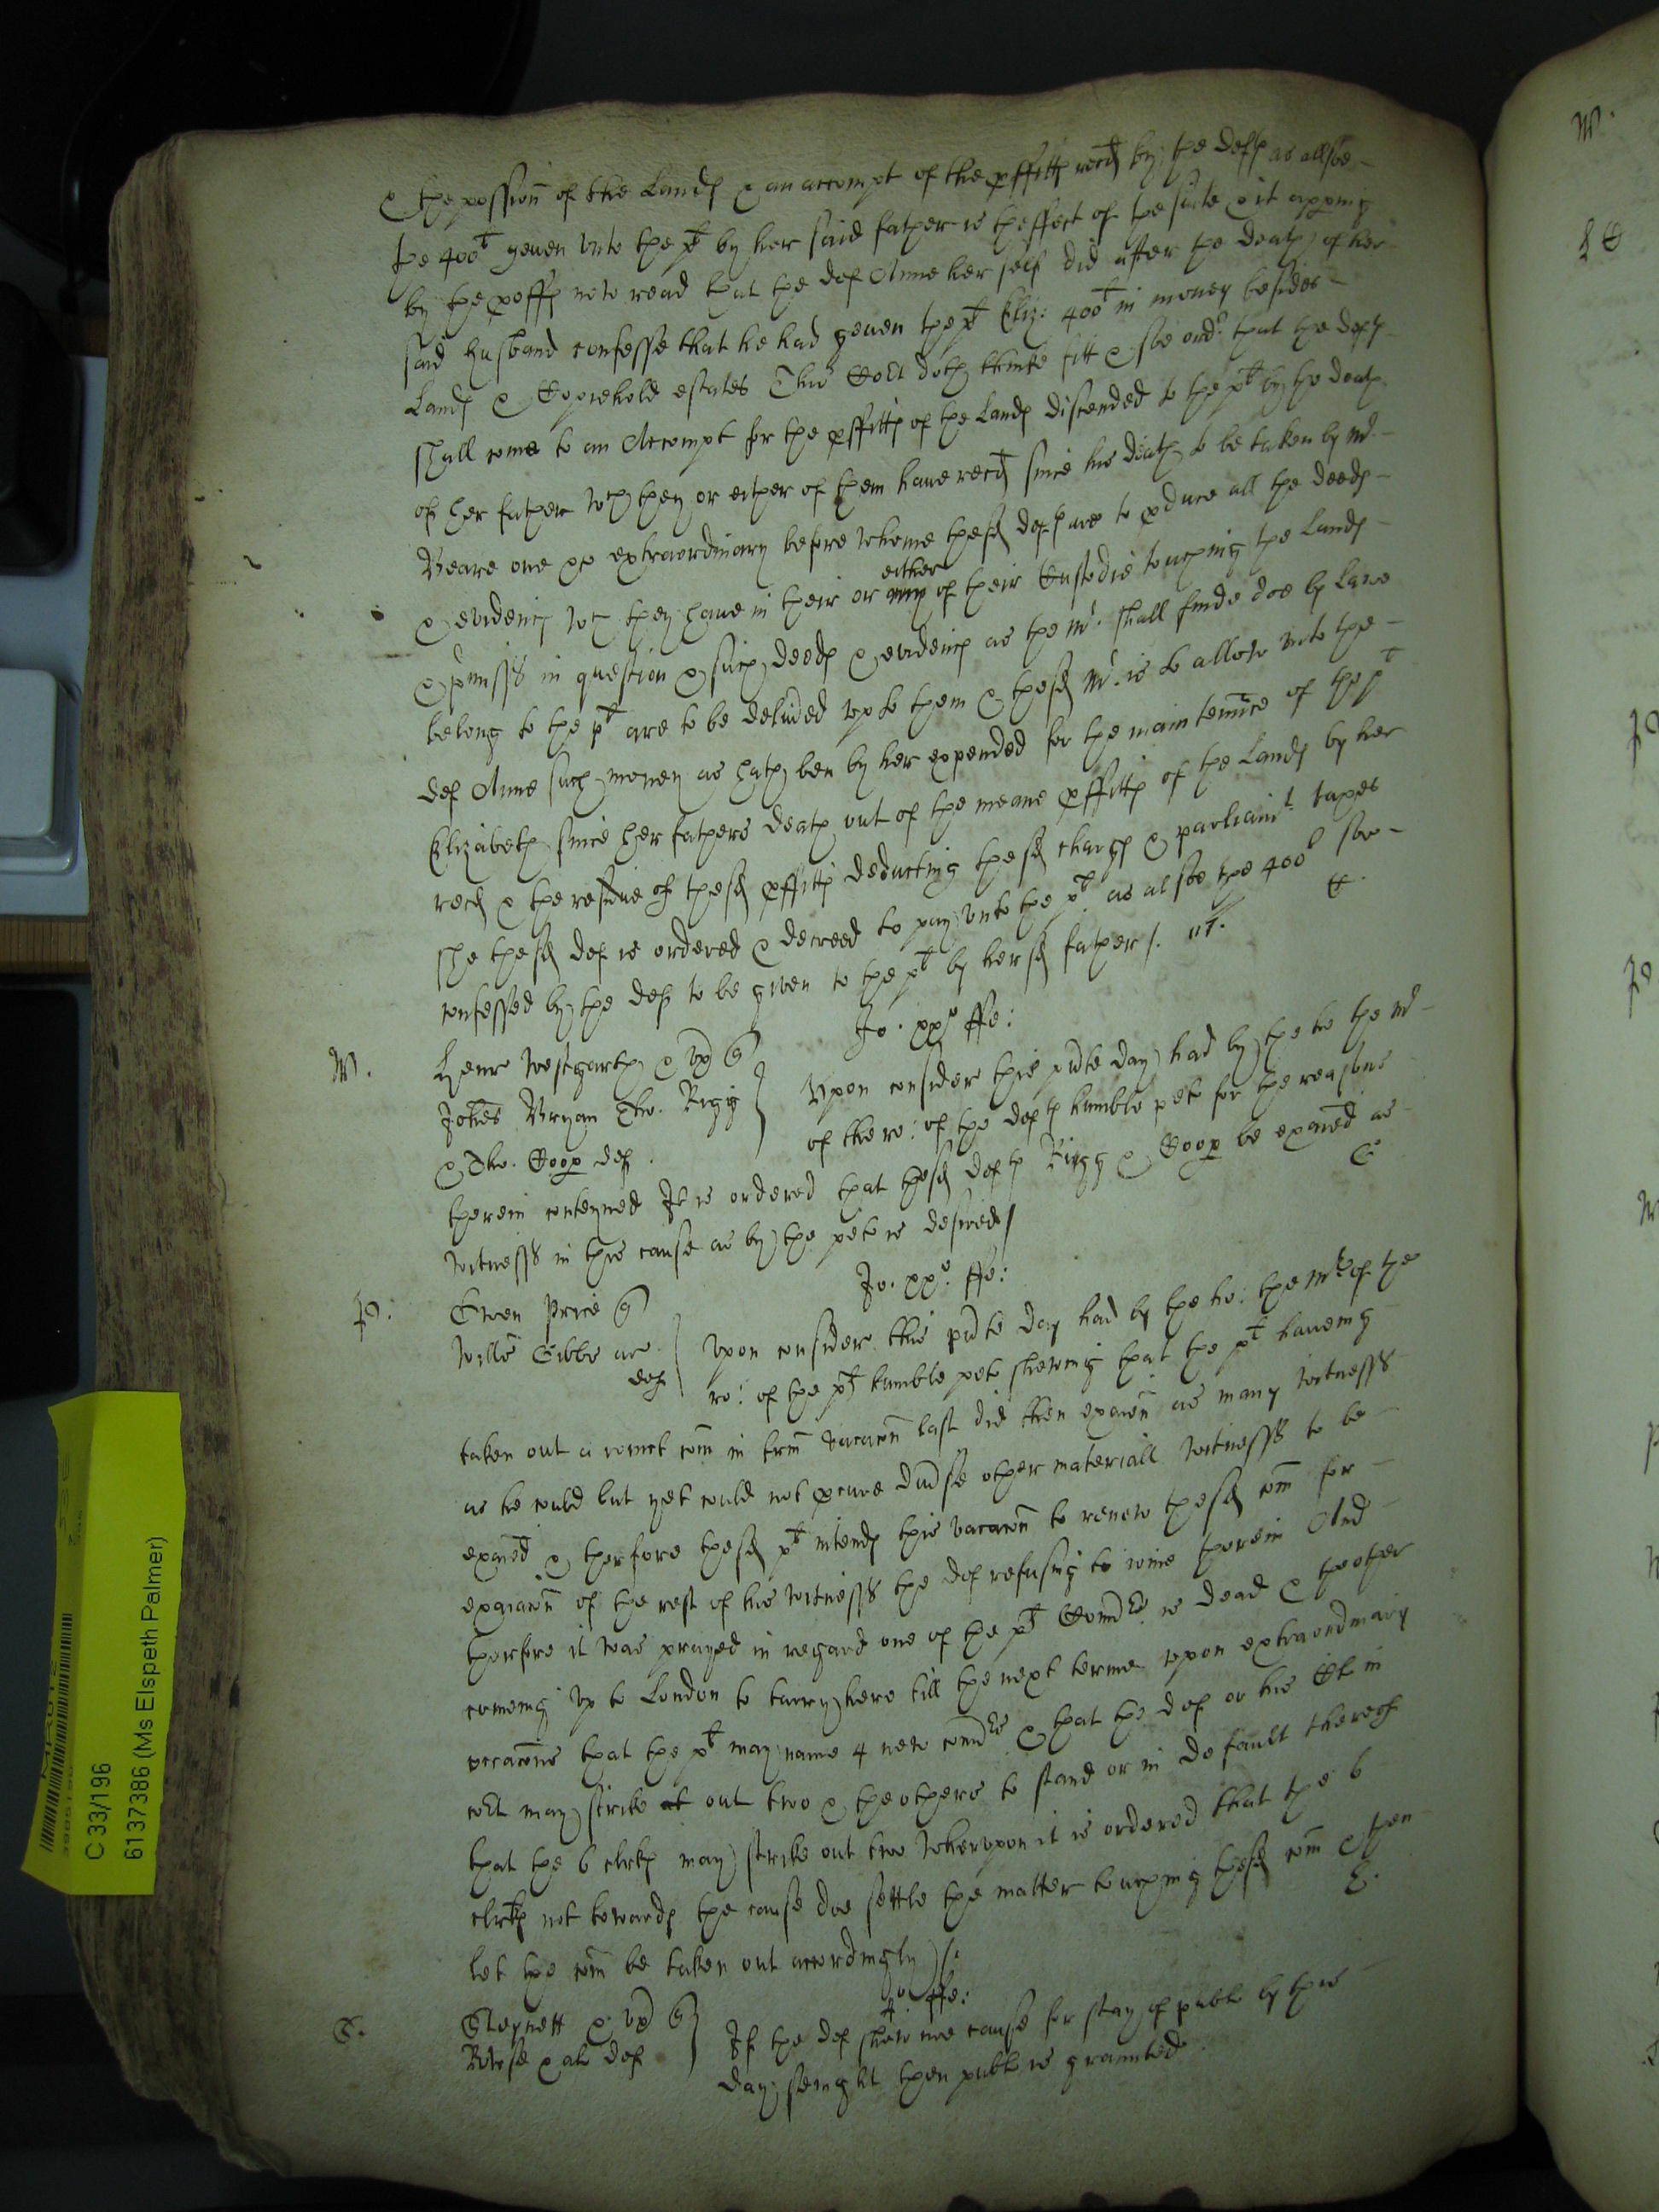 & the possion of the Lands & an accompt of the pffitts recd by the defts as allsoe
the 400l geuen vnto the plt by her said father is theffect of the suite & it appring
by the proffs now read that the def Anne her self did after the death of her
said husband confesse that he had geuen the plt Eliz: 400l in money besides
Lands & Coppiehold estates This Cort doth thinke fitt & soe ordr that the defts
shall come to an Accompt for the pffitts of the Lands discended to the plt by the death
of her father wch they or either of them haue recd since his death to be taken by Mr
Beare one &c extraordinary before whome the sd defts are to pduce all the deeds
& evidencs wch they haue in their or either of their Custodie touching the Lands
& pmisss in question & such deeds & evidencs as the Mr shall finde doe by Lawe
belong to the plt are to be deliued vp to them & the sd Mr is to allow vnto the
def Anne such money as hath ben by her expended for the maintenince of the plt
Elizabeth since her fathers death out of the meane pffitts of the Lands by her
recd & the residue of the sd pffitts deducting the sd chargs & parliamt taxes
she the sd def is ordered & decreed to pay vnto the plt as alsoe the 400l soe
confessed by the def to be given to the plt by her sd father /.
Jo. xxo ffe:
W. Henr Westgarth & vx
Johes Bryan Tho. Rigg
& Tho. Coop def.
Upon consider this pnte day had by the ho the Mr
of the ro: of the defts humble peto for the reasons
therein conteyned It is ordered that the sd defts Rigg & Coop be exaied as
witnesss in this cause as by the peto is desired/
Jo. xxo. ffe:
P. Owen Price
Willo Gibbs ar
def
Vpon consider this pnte day had by the ho: the Mr of the
ro: of the plt humble peto shewing that the plt haueing
taken out a comct com in trm vacacon last did then exaion as many witnesss
as he could but yet could not pcure diuse other materiall witnesss to be
exaied & therfore the sd plt intends this vacacon to renew the sd com for
exaiacon of the rest of his witnesss the def refusing to ioine therein And
therfore it was prayed in regard one of the plt Comrs is dead & the other
comeing vp to London to tarry here till the next terme vpon extraordinary
occacons that the plt may name 4 new comrs & that the def or his Clk in
cort may strike out two & the others to stand or in default thereof
that the 6 clerks may strike out two Wherupon it is ordered that the 6
clrks not towards the cause doe settle the matter touching the sd com & then
let the com be taken out accordingly /.
xo. ffe:
S. Stephett & vx
Rowse & al def
If the def shew noe cause for stay of publc by this
day senight then publc is graunted
C 33/196
6137386 (Ms Elspeth Palmer)